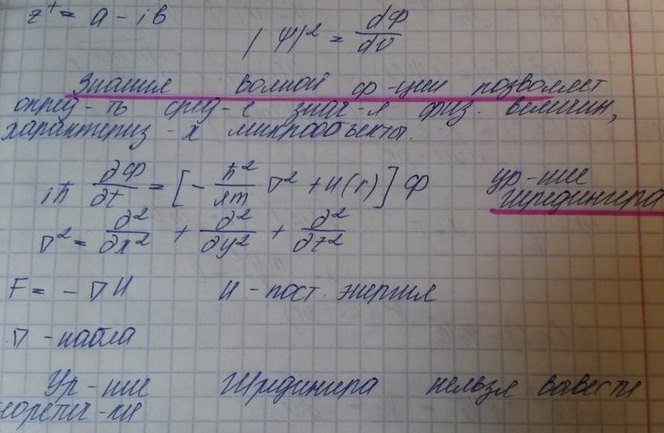 z⁺ = a - iв
|Ψ|² = dФ/dv
Знания волной ф-ции позволяет
опред-ть сред-е знач-я физ. величин,
характериз-х микрообъекта.
iħ ∂Ф/∂t = [-ħ²/2m ∇² + U(r)] Ф ур-ние Шредингера
∇² = ∂²/∂x² + ∂²/∂y² + ∂²/∂z²
F = - ∇U U - пот. энергия
∇ - набла
Ур-ние Шредингера нельзя вывести